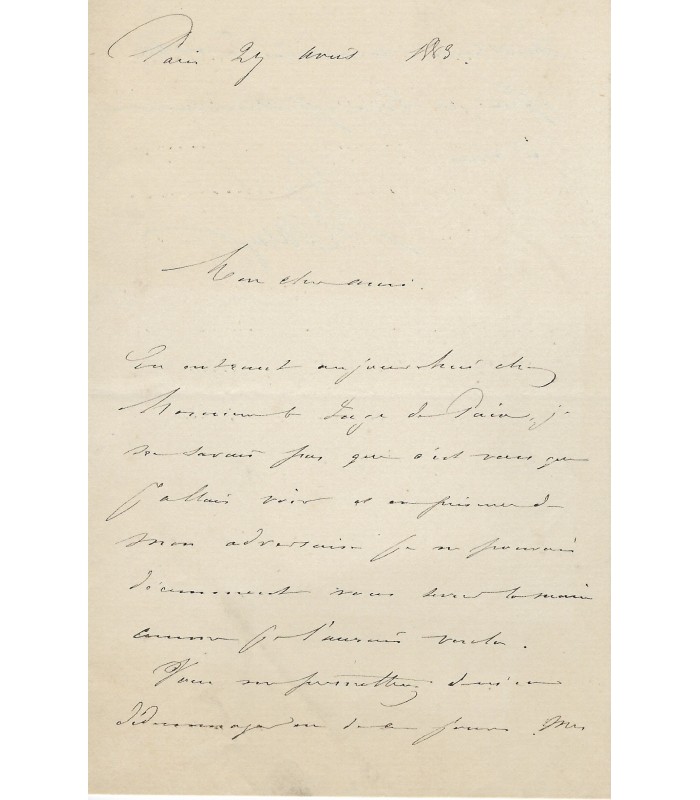 Paris 27 avril 1883.
Mon cher ami.
En entrant aujourd'hui chez
Monsieur le Juge de Paix, je
ne savais pas que c'est vous que
j'allais voir et en présence de
mon adversaire je ne pouvais
décemment vous serrer la main
comme je l'aurais voulu.
Vous me permettrez d'
dédommager un de ces jours. Mes